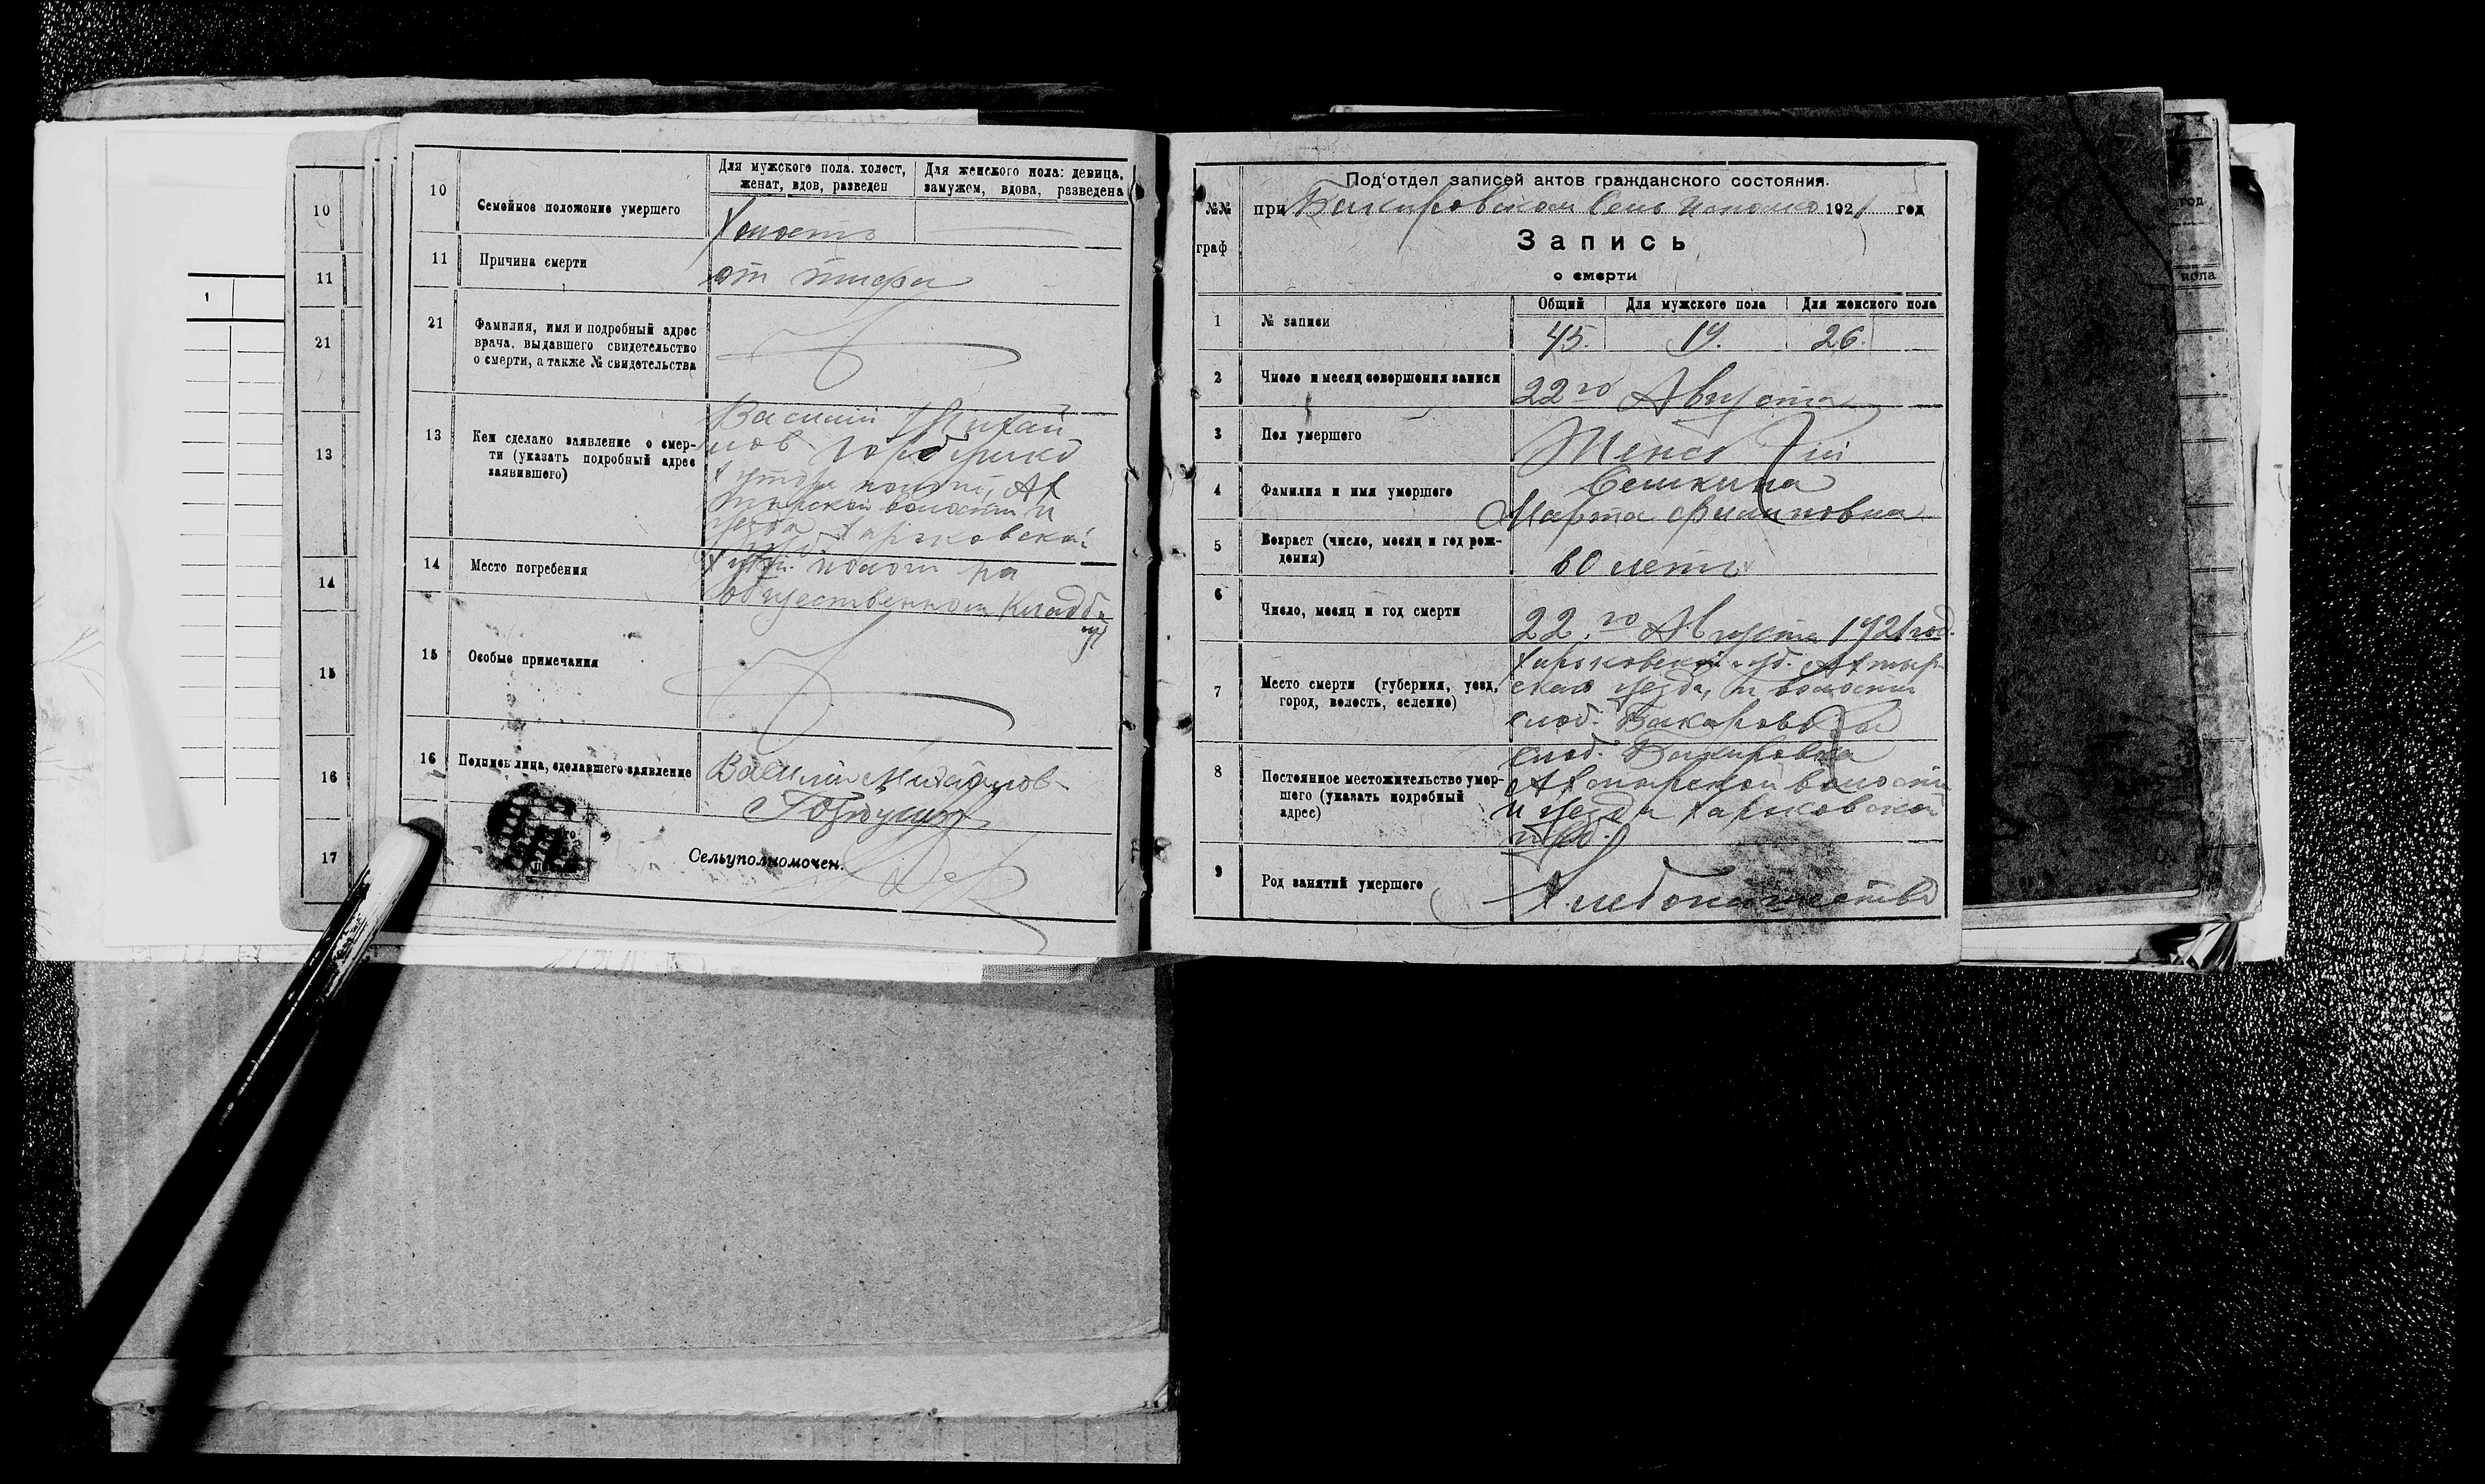 10
11
21
13
14
15
16
17
1
10
Семейное положение умершего
Для мужского пола. холост,
женат, вдов, разведен
Для женского пола: девица,
замужем, вдова, разведена
Холостъ
11
Причина смерти
от тифа
21
Фамилия, имя и подробный адрес
врача, выдавшего свидетельство
о смерти, а также № свидетельства
13
Кем сделано заявление о смер-
ти (указать подробный адрес
заявившего)
Василий Михай
лов
хутора Ах
тырской волости и
уезда Харьковской
14
Место погребения
Хутор на
общественном кладби
щу
15
Особые примечания
16
Подпись лица, сделавшего заявление
Василий Михайлов
Сельуполномочен.
№№
граф
Под'отдел записей актов гражданского состояния.
при Бакировском Сель Исполко 1921 год
Запись
о смерти
1
№ записи
Общий
Для мужского пола
Для женского пола
45.
19.
26.
2
Число и месяц совершения записи
22го Августа
3
Пол умершего
Женский
4
Фамилия и имя умершего
Марта Филиповна
5
Возраст (число, месяц и год рож-
дения)
60 летъ
6
Число, месяц и год смерти
22.го Августа 1921 год.
7
Место смерти (губерния, уезд,
город, волость, селение)
Харьковской губ. Ахтыр
ского уезда, и волости
слоб. Бакировка
8
Постоянное местожительство умер-
шего (указать подробный
адрес)
слоб. Бакировка
Ахтырской волости
и уезда Харьковской
губ.
9
Род занятий умершего
Хлебопашество
год
пола